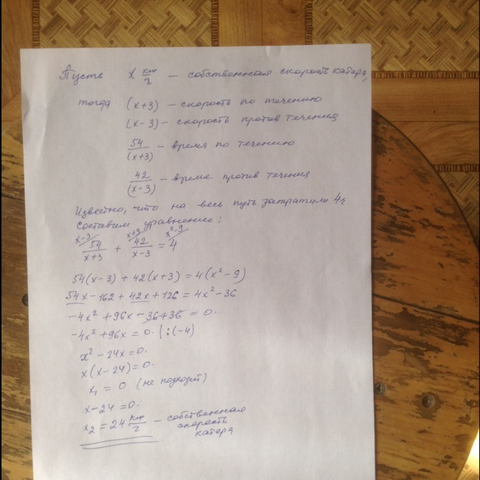 Пусть x км/г — собственная скорость катера,
тогда (x+3) — скорость по течению
(x-3) — скорость против течения
54/(x+3) — время по течению
42/(x-3) — время против течения
Известно, что на весь путь затратили 4г
Составим уравнение:
x-3 x+3 x²-9
54/x+3 + 42/x-3 = 4
54(x-3)+42(x+3)=4(x²-9)
54x-162+42x+126=4x²-36
-4x²+96x-36+36=0.
-4x²+96x=0. |:(-4)
x²-24x=0.
x(x-24)=0.
x₁=0 (не подходит)
x-24=0.
x₂=24 км/г — собственная
скорость
катера